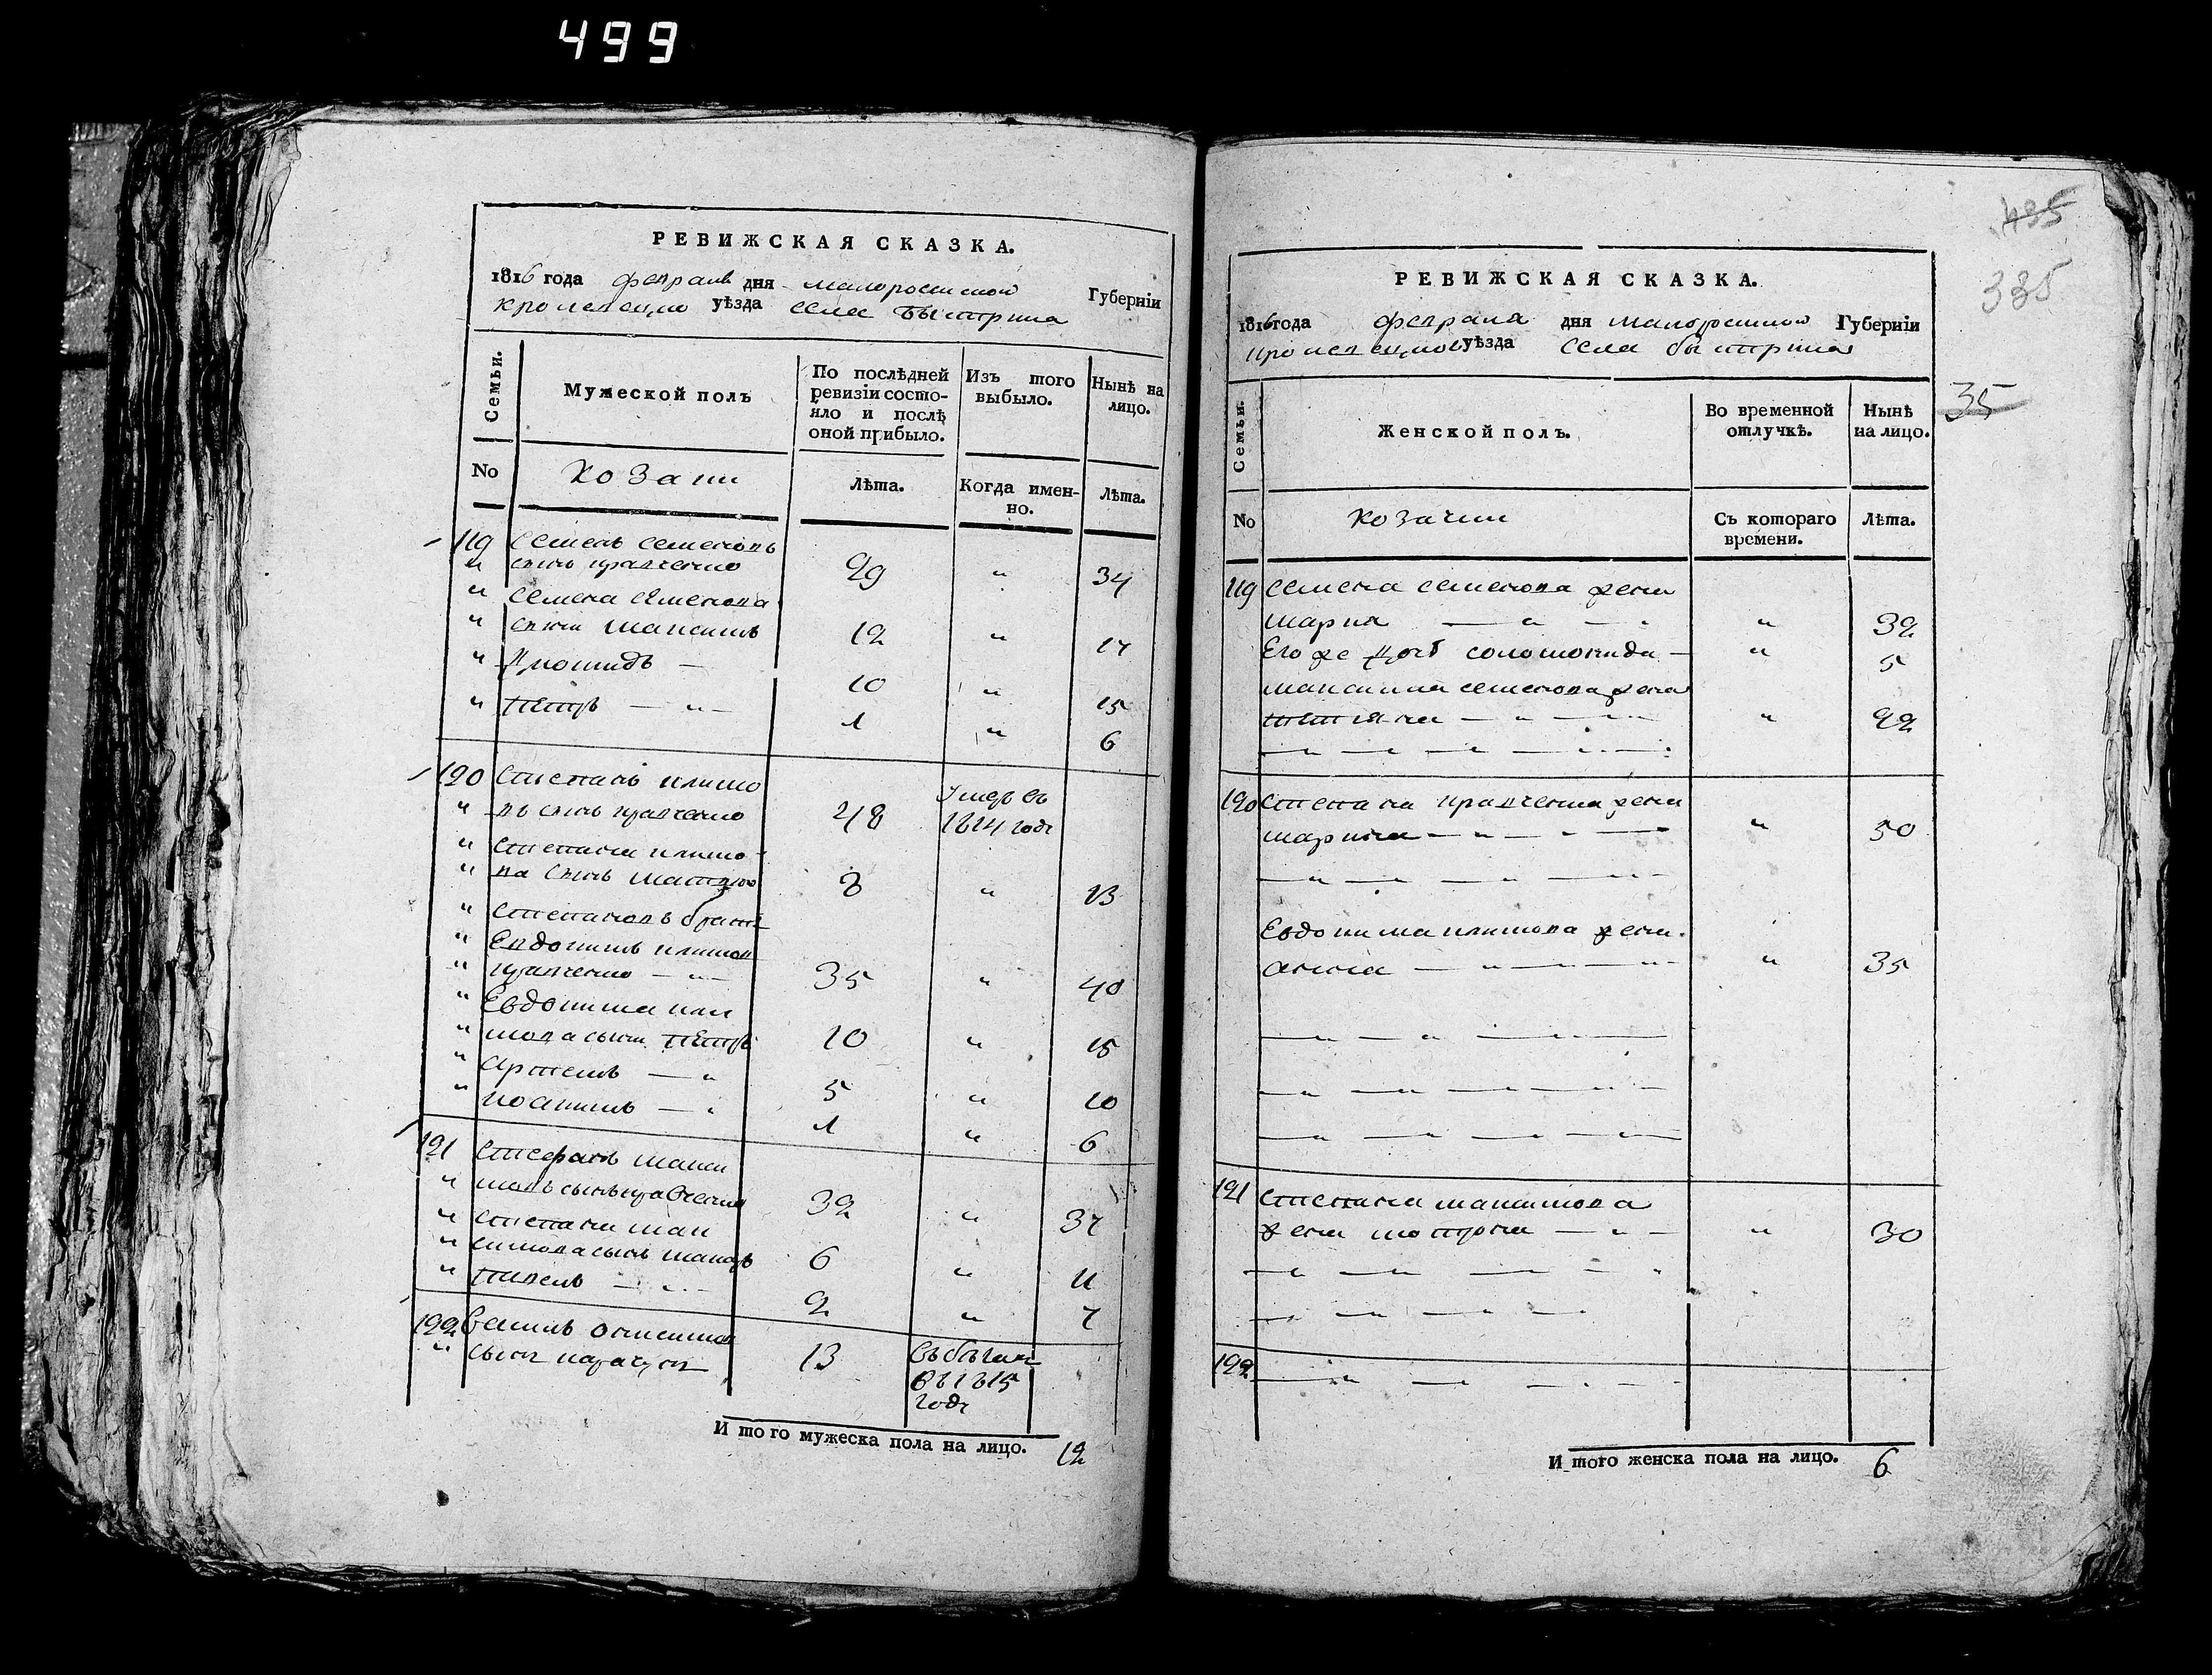 499
РЕВИЖСКАЯ СКАЗКА.
1816 года февраля дня малоросийской Губерніи
кролевецко уѣзда села Быстрика
Семьи.
Мужеской полъ
По послѣдней ревизіи состо-
яло и послѣ
оной прибыло.
Изъ того
выбыло.
Нынѣ на
лицо.
No
Козаки
Лѣта.
Когда имен-
но.
Лѣта.
119 Семенъ семеновъ
" сынъ кравченко 29 " 34
" Семена семенова
" сыни максимъ 12 " 17
" Диомидъ — 10 " 15
" Петръ — " — 1 " 6
120 Степанъ климо
" въ сынъ кравченко 48 Умеръ въ
1814 годе
" Степана климо-
" ва сынъ матвѣй 8 " 13
" Степановъ братъ
" Евдокимъ климов
" кравченко — " — 35 " 40
" Евдокима кли
" мова сыни Петръ 10 " 15
" Артемъ — " 5 " 10
" иоакимъ — " 1 " 6
121 Стефанъ макси
" мовъ сынъ кравченко 32 " 37
" Степана мак
" симова сынъ макаръ 6 " 11
" Павелъ — " — 2 " 7
122
" сынъ 13
въ 1815
годе
И того мужеска пола на лицо. 12
435
385
35
РЕВИЖСКАЯ СКАЗКА.
1816 года февраля дня малоросийской Губерніи
кролевецкой уѣзда села быстрика
Семьи.
Женской полъ.
Во временной
отлучкѣ.
Нынѣ
на лицо.
No
козачки
Съ котораго
времени.
Лѣта.
119 Семена семенова жена
мария — " — " 32
Его же дочь соломонида — " 5
максима семенова жена
татияна — " — " — " 22
— " — " — " — " —
120 Степана кравченка жена
марина — " — " — " 50
— " — " — " — " —
Евдокима климова жена
анна — " — " — " 35
— " — " — " —
— " — " — " — " —
— " — " — " — " —
121 Степана максимова
жена мотрона — " — " 30
— " — " — " — "
— " — " — " —
122 — " — " — " —
И того женска пола на лицо. 6